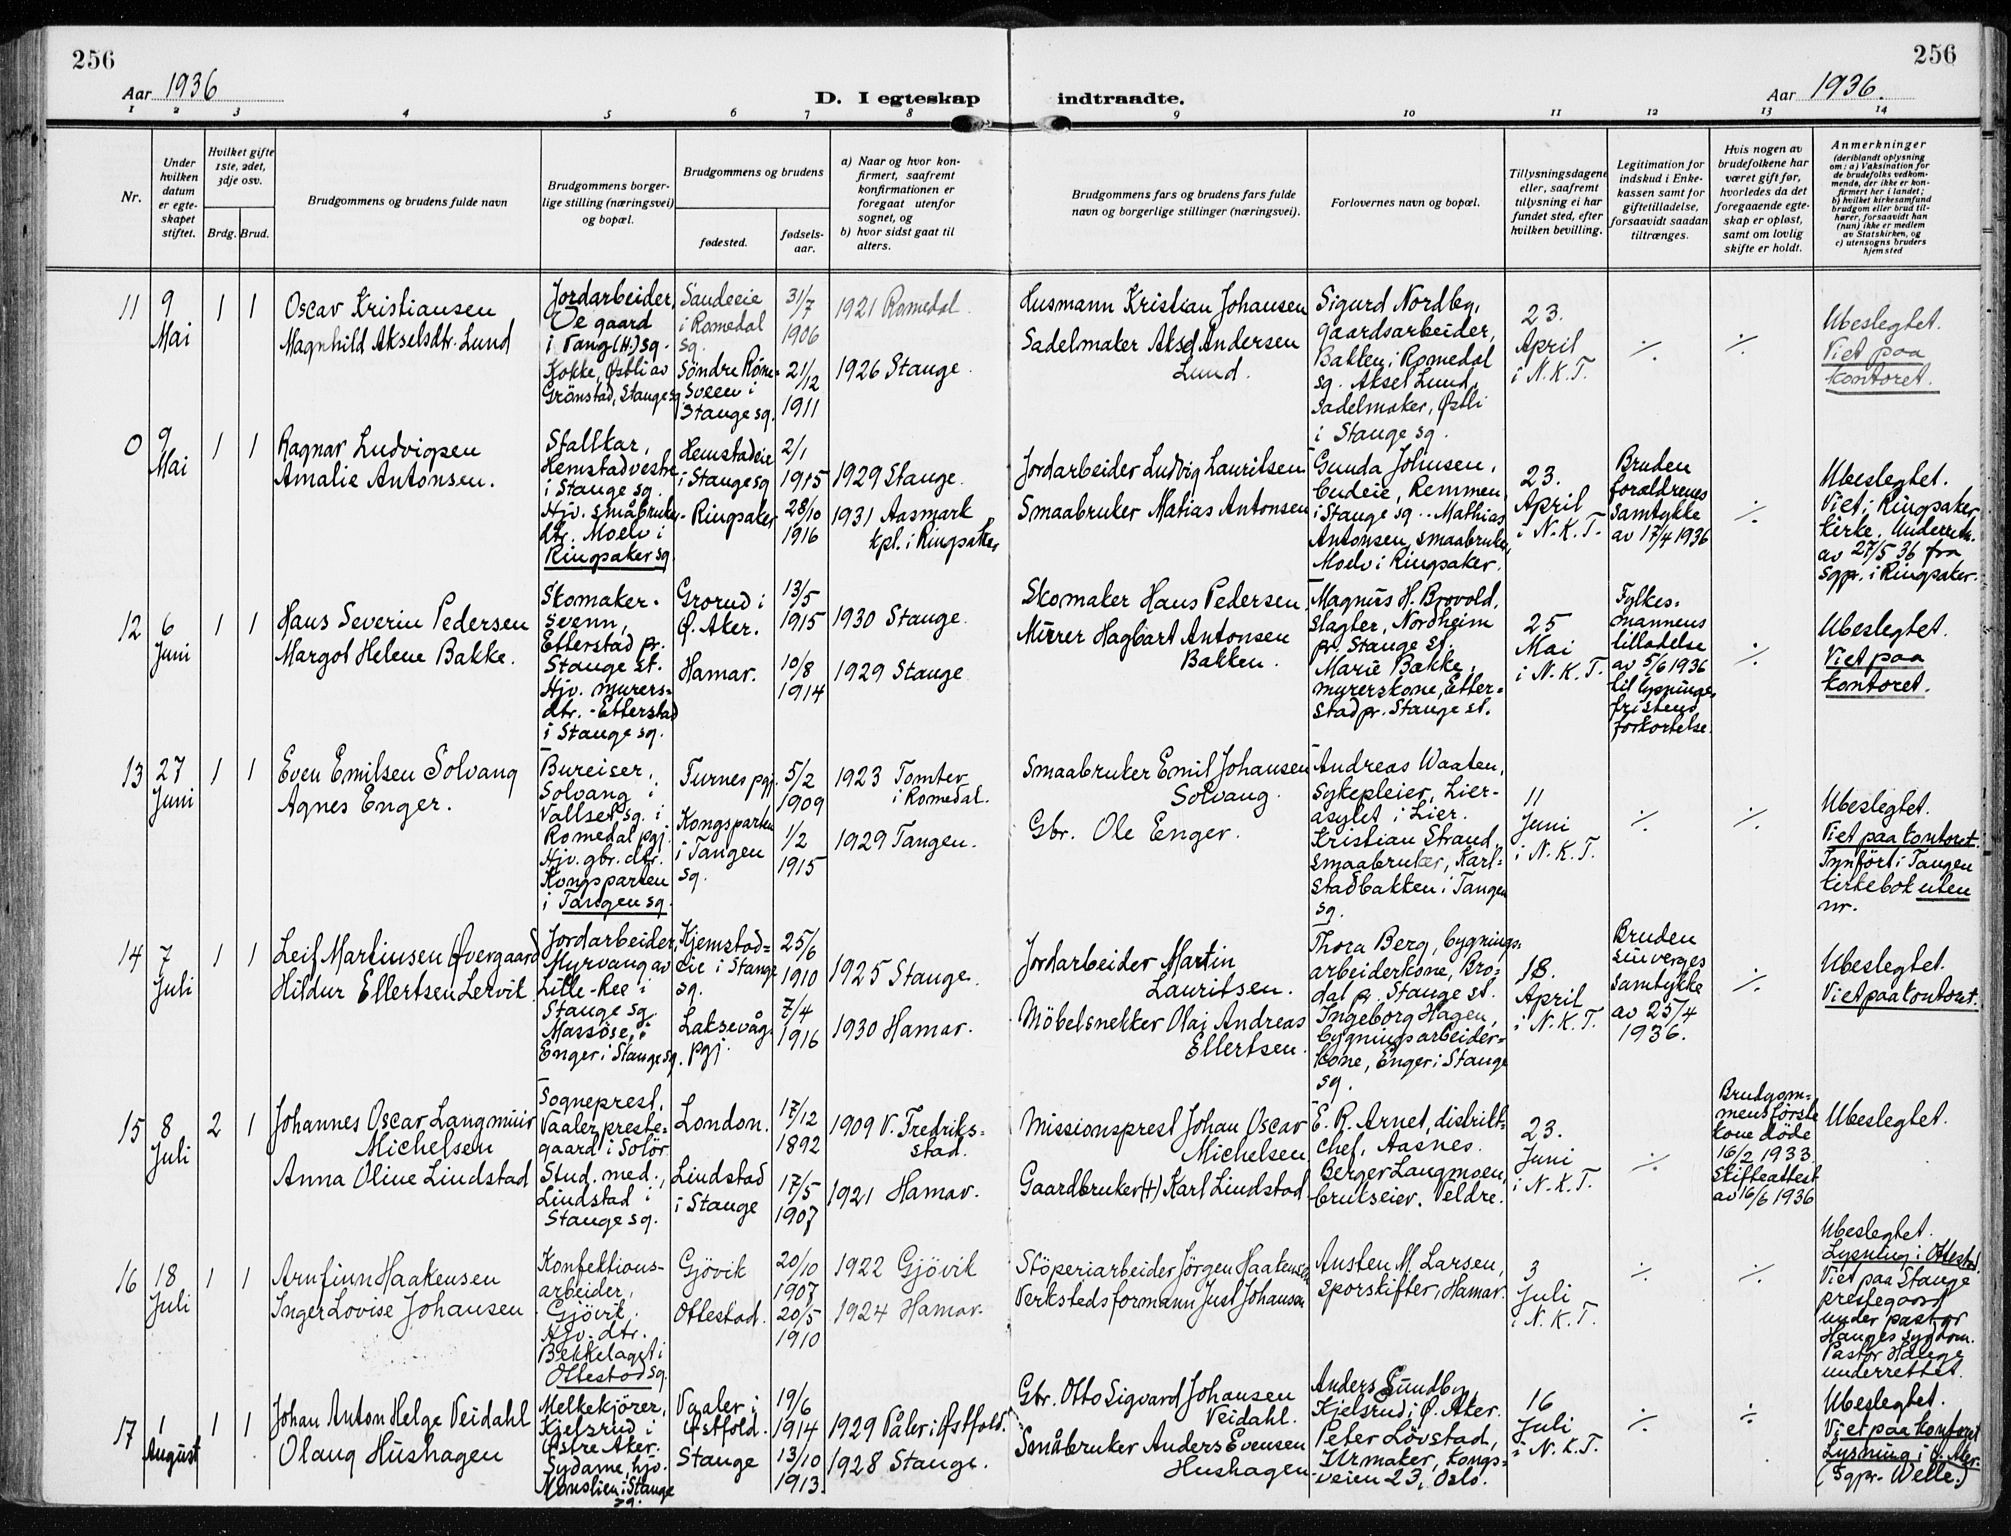 256
256
Aar 1936
D. I egteskap indtraadte.
Aar 1936.
1 2 3 4 5 6 7 8 9 10 11 12 13 14
Nr.
Under hvilken datum er egteskapet stiftet.
Hvilket gifte 1ste, 2det, 3dje osv.
Brdg. Brud.
Brudgommens og brudens fulde navn
Brudgommens borgerlige stilling (næringsvei) og bopæl.
Brudgommens og brudens
fødested.
fødselsaar.
a) Naar og hvor konfirmert, saafremt konfirmationen er foregaat utenfor sognet, og
b) hvor sidst gaat til alters.
Brudgommens fars og brudens fars fulde navn og borgerlige stillinger (næringsvei).
Forlovernes navn og bopæl.
Tillysningsdagene eller, saafremt tillysning ei har fundet sted, efter hvilken bevilling.
Legitimation for indskud i Enkekassen samt for giftetilladelse, forsaavidt saadan tiltrænges.
Hvis nogen av brudefolkene har været gift før, hvorledes da det foregaaende egteskap er opløst, samt om lovlig skifte er holdt.
Anmerkninger
(deriblandt oplysning om: a) Vaksination for de brudefolks vedkommende, der ikke er konfirmert her i landet;
b) hvilket kirkesamfund brudgom eller brud tilhører, forsaavidt han (hun) ikke er medlem av Statskirken, og
c) utensogns bruders hjemsted
11
9 Mai
1 1
Oscar Kristiansen
Magnhild Akselsdtr. Lund
Jordarbeider,
Oe gaard
i Vang (H.) sg.
Kokke, Østli av
Grönstad, Stange sg.
Sandeeie
i Romedal
sg.
Søndre Röne-
sveen i
Stange sg.
31/7
1906
21/12
1911
1921 Romedal.
1926 Stange.
Husmann Kristian Johansen
Sadelmaker Aksel Andersen
Lund.
Sigurd Nordby,
gaardsarbeider,
Bakken i Romedal
sg. Aksel Lund,
sadelmaker, Østli
i Stange sg.
23.
April
i N.K.T.
./.
./.
Ubeslegtet.
Viet paa
kontoret.
0
9 Mai
1 1
Ragnar Ludvigsen
Amalie Antonsen.
Stallkar,
Hemstad vestre
i Stange sg.
Hjv. småbruker-
dtr. Moelv i
Ringsaker sg.
Hemstadeie
i Stange sg
Ringsaker
2/1
1915
28/10
1916
1929 Stange.
1931 Aasmark
kpl. i Ringsaker
Jordarbeider Ludvig Lauritsen
Smaabruker Matias Antonsen
Gunda Johnsen,
budeie, Remmen
i Stange sg. Mathias
Antonsen, smaabruker,
Moelv i Ringsaker.
23.
April
i N.K.T.
Bruden
forældrenes
samtykke
av 17/4 1936
./.
Ubeslegtet.
Viet i Ringsaker
kirke. Underretn.
av 27/5 36 fra
sgpr. i Ringsaker.
12
6 Juni
1 1
Hans Severin Pedersen
Margot Helene Bakke.
Skomaker-
svenn,
Etterstad pr.
Stange st.
Hjv. murers-
dtr. - Etterstad
i Stange sg.
Grorud i
Ø. Aker.
Hamar.
13/5
1915
10/8
1914
1930 Stange.
1929 Stange
Skomaker Hans Pedersen
Murer Hagbart Antonsen
Bakken.
Magnus H. Brovold,
slagter, Nordheim
pr. Stange st.
Marie Bakke,
murerskone, Etter-
stad pr. Stange st.
25
Mai
i N.K.T.
Fylkes-
mannens
tilladelse
av 5/6 1936
til lysnings-
fristens
forkortelse.
./.
Ubeslegtet.
Viet paa
kontoret.
13
27 Juni
1 1
Even Emilsen Solvang
Agnes Enger.
Bureiser,
Solvang i
Vallset sg. i
Romedal pgj.
Hjv. gbr. dtr.
Kongsparten
i Tangen sg.
Furnes pgj.
Kongsparten
i Tangen
sg.
5/2
1909
1/2
1915
1923 Tomter
i Romedal.
1929 Tangen.
Smaabruker Emil Johansen
Solvang.
Gbr. Ole Enger.
Andreas Waaten,
sykepleier, Lier-
asylet i Lier.
Kristian Strand,
smaabruker, Karl-
stadbakken i Tangen
sg.
11
Juni
i N.K.T.
./.
./.
Ubeslegtet.
Viet paa kontoret.
Innført i Tangen
kirkebok uten
nr.
14
7 Juli
1 1
Leif Martinsen Øvergaard
Hildur Ellertsen Lervik.
Jordarbeider,
Myrvang av
Lille-Ree i
Stange sg
Massöse,
Enger i Stange sg.
Kjemstad-
eie i Stange
sg.
Laksevåg
pgj.
25/6
1910
7/4
1916
1925 Stange.
1930 Hamar.
Jordarbeider Martin
Lauritsen.
Möbelsnekker Olaj Andreas
Ellertsen.
Thora Berg, bygnings-
arbeiderkone, Bro-
dal pr. Stange st.
Ingeborg Hagen,
bygningsarbeider-
kone, Enger i Stange
sg.
18.
April
i N.K.T.
Bruden
sin verges
samtykke
av 25/4
1936.
./.
Ubeslegtet.
Viet paa kontoret.
15
8 Juli
2 1
Johannes Oscar Langmuir
Michelsen
Anna Oline Lindstad
Sogneprest,
Vaaler preste-
gaard i Solör
Stud. med.,
Lindstad i
Stange sg.
London.
Lindstad
i Stange
17/12
1892
17/5
1907
1909 V. Fredrik-
stad.
1921 Hamar.
Missionsprest Johan Oscar
Michelsen
Gaardbruker (+) Karl Lindstad
E. R. Arnet, distrikt-
chef, Aasnes.
Berger Langmoen,
brukseier. Veldre.
23.
Juni
i N.K.T.
./.
Brudgom-
mens förste
kone döde
16/2 1933
Skifteattest
av 16/6 1936
Ubeslegtet.
16
18 Juli
1 1
Arnfinn Haakensen
Inger Lovise Johansen
Konfektions-
arbeider,
Gjövik.
Hjv. dtr.
Bekkelaget i
Ottestad sg.
Gjövik
Ottestad.
20/10
1907
20/5
1910
1922 Gjövik
1924 Hamar.
Stöperiarbeider Jörgen Haakensen
Verkstedsformann Just Johansen
Austen M. Larsen,
sporskifter, Hamar.
3
Juli
i N.K.T.
./.
./.
Ubeslegtet.
Lysning i Ottestad.
Viet paa Stange
prestegaard
under pastor
Hauges sygdom.
Pastor Hauge
underrettet.
17
1 August
1 1
Johan Anton Helge Veidahl
Olaug Hushagen
Melkekjörer,
Kjelsrud i
Østre Aker.
Sydame, hjv.
Monslien i Stange
sg.
Vaaler i
Østfold.
Stange
19/6
1914
13/10
1913.
1929 Våler i Østfold.
1928 Stange.
Gbr. Otto Sigvard Johansen
Veidahl.
Småbruker Anders Evensen
Hushagen
Anders Sundby,
Kjelsrud i Ø. Aker.
Peter Lövstad,
Urmaker, Kongs-
veien 23, Oslo.
16
Juli
i N.K.T.
./.
./.
Ubeslegtet.
Viet paa kontoret
Lysning i Ø. Aker.
(Sgpr. Welle.)